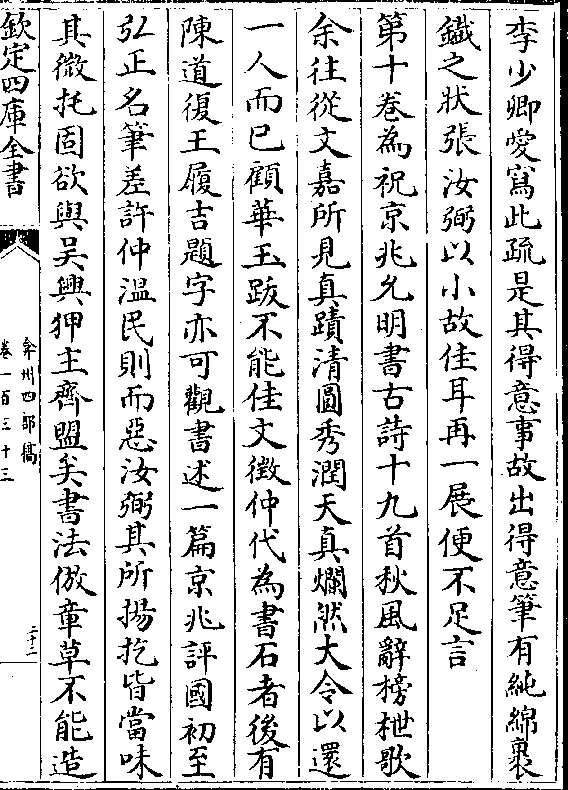 李少卿愛寫此䟽是其得意事故出得意筆有純綿裹
鐡之狀張汝弼以小故佳耳再一展便不足言
第十卷為祝京兆允明書古詩十九首秋風辭榜枻歌
余往從文嘉所見真蹟清圓秀潤天真爛然大令以還
一人而已顧華玉跋不能佳文徴仲代為書石者後有
陳道復王履吉題字亦可觀書述一篇京兆評國初至
弘正名筆差許仲溫民則而惡汝弼其所揚扢皆當味
其微托固欲與吴興狎主齊盟矣書法倣章草不能造
欽定四庫全書
弇州四部稿
卷一百三十三
二十二